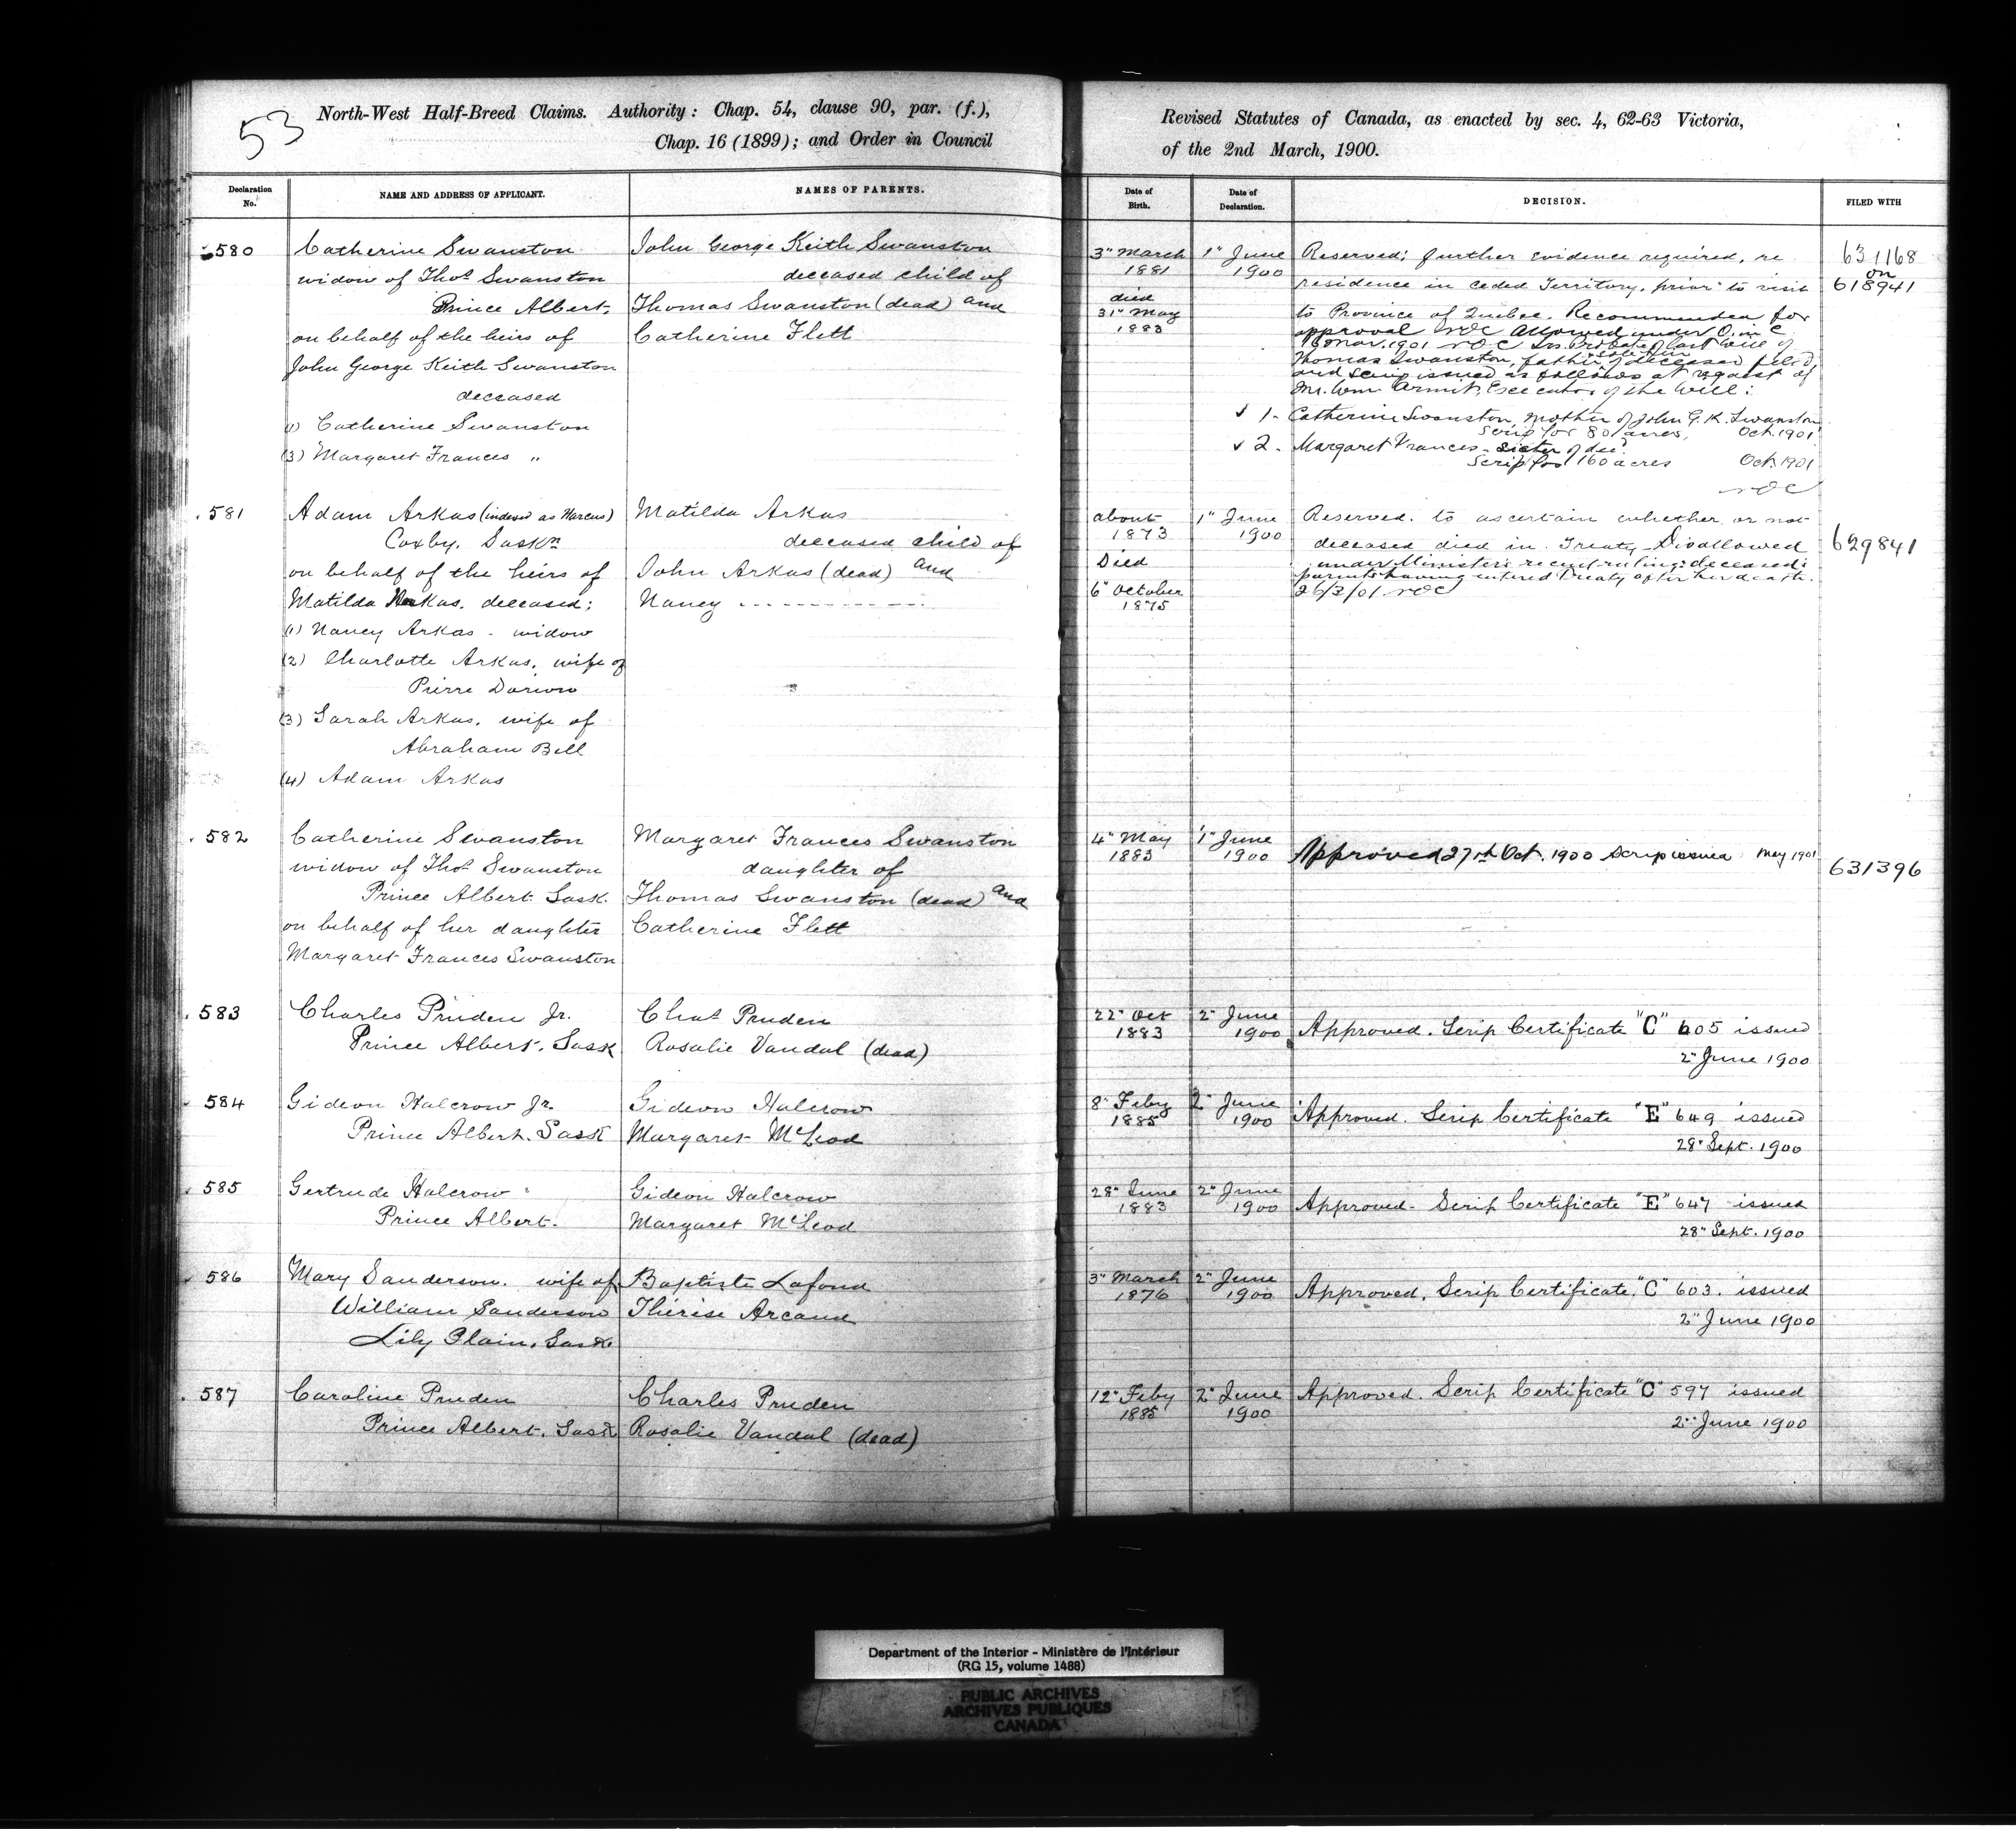 53
North-West Half-Breed Claims. Authority: Chap. 54, clause 90, par. (f.),
Chap. 16 (1899); and Order in Council
Revised Statutes of Canada, as enacted by sec. 4, 62-63 Victoria,
of the 2nd March, 1900.
Declaration No.
NAME AND ADDRESS OF APPLICANT.
NAMES OF PARENTS.
Date of Birth.
Date of Declaration.
DECISION.
FILED WITH
580
Catherine Swanston
widow of Thos Swanston
Prince Albert,
on behalf of the heirs of
John George Keith Swanston
deceased
(1) Catherine Swanston
(3) Margaret Frances "
John George Keith Swanston
deceased child of
Thomas Swanston (dead) and
Catherine Flett
3" March
1881
died
31" May
1883
1" June
1900
Reserved; further evidence required, re
residence in ceded Territory, prior to visit
to Province of Quebec. Recommended for
approval NOC allowed under O. in C.
16 Nov. 1901 NOC Probate of last will of
Thomas Swanston, father of deceased filed
and scrip issued as follows at request of
Mr. Wm Armit, Executor of the Will:
✓ 1. Catherine Swanston, mother of John G. K. Swanston
Scrip for 80 acres, Oct. 1901
✓ 2. Margaret Frances - sister of dec.
Scrip for 160 acres Oct. 1901
NOC
631168
on
618941
581
Adam Arkas (indexed as Marcus)
Coxby, Saskn
on behalf of the heirs of
Matilda Arkas, deceased;
(1) Nancy Arkas - widow
(2) Charlotte Arkas, wife of
Pierre Dorion
(3) Sarah Arkas, wife of
Abraham Bell
(4) Adam Arkas
Matilda Arkas
deceased child of
John Arkas (dead) and
Nancy -------------
about
1873
Died
6" October
1875
1" June
1900
Reserved. to ascertain whether or not
deceased died in Treaty. Disallowed
under Minister's recent ruling: deceased's
parents having entered Treaty after her death.
26/3/01 NOC
629841
582
Catherine Swanston
widow of Thos Swanston
Prince Albert Sask.
on behalf of her daughter
Margaret Frances Swanston
Margaret Frances Swanston
daughter of
Thomas Swanston (dead) and
Catherine Flett
4" May
1883
1" June
1900
Approved 27th Oct. 1900 Scrip issued May 1901
631396
583
Charles Pruden Jr.
Prince Albert, Sask
Chas Pruden
Rosalie Vandal (dead)
22" Oct
1883
2" June
1900
Approved. Scrip Certificate "C" 605 issued
2" June 1900
584
Gideon Halcrow Jr.
Prince Albert. Sask
Gideon Halcrow
Margaret McLeod
8" Feby
1885
2" June
1900
Approved. Scrip Certificate "E" 649 issued
28" Sept. 1900
585
Gertrude Halcrow
Prince Albert.
Gideon Halcrow
Margaret McLeod
28" June
1883
2" June
1900
Approved - Scrip Certificate "E" 647 issued
28" Sept. 1900
586
Mary Sanderson. wife of
William Sanderson
Lily Plain, Sask.
Baptiste Lafond
Thérèse Arcand
3" March
1876
2" June
1900
Approved. Scrip Certificate "C" 603. issued
2" June 1900
587
Caroline Pruden
Prince Albert, Sask
Charles Pruden
Rosalie Vandal (dead)
12" Feby
1885
2" June
1900
Approved. Scrip Certificate "C" 597 issued
2" June 1900
Department of the Interior - Ministère de l'Intérieur
(RG 15, volume 1488)
PUBLIC ARCHIVES
ARCHIVES PUBLIQUES
CANADA